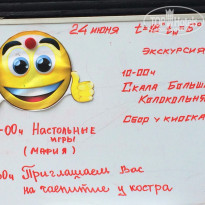 24 июня
Экскурсия
10-00ч
Скала Больша
Колокольня
Сбор у киоска
-00ч Настольные
игры
(Мария)
00ч Приглашаем Вас
на чаепитие у костра